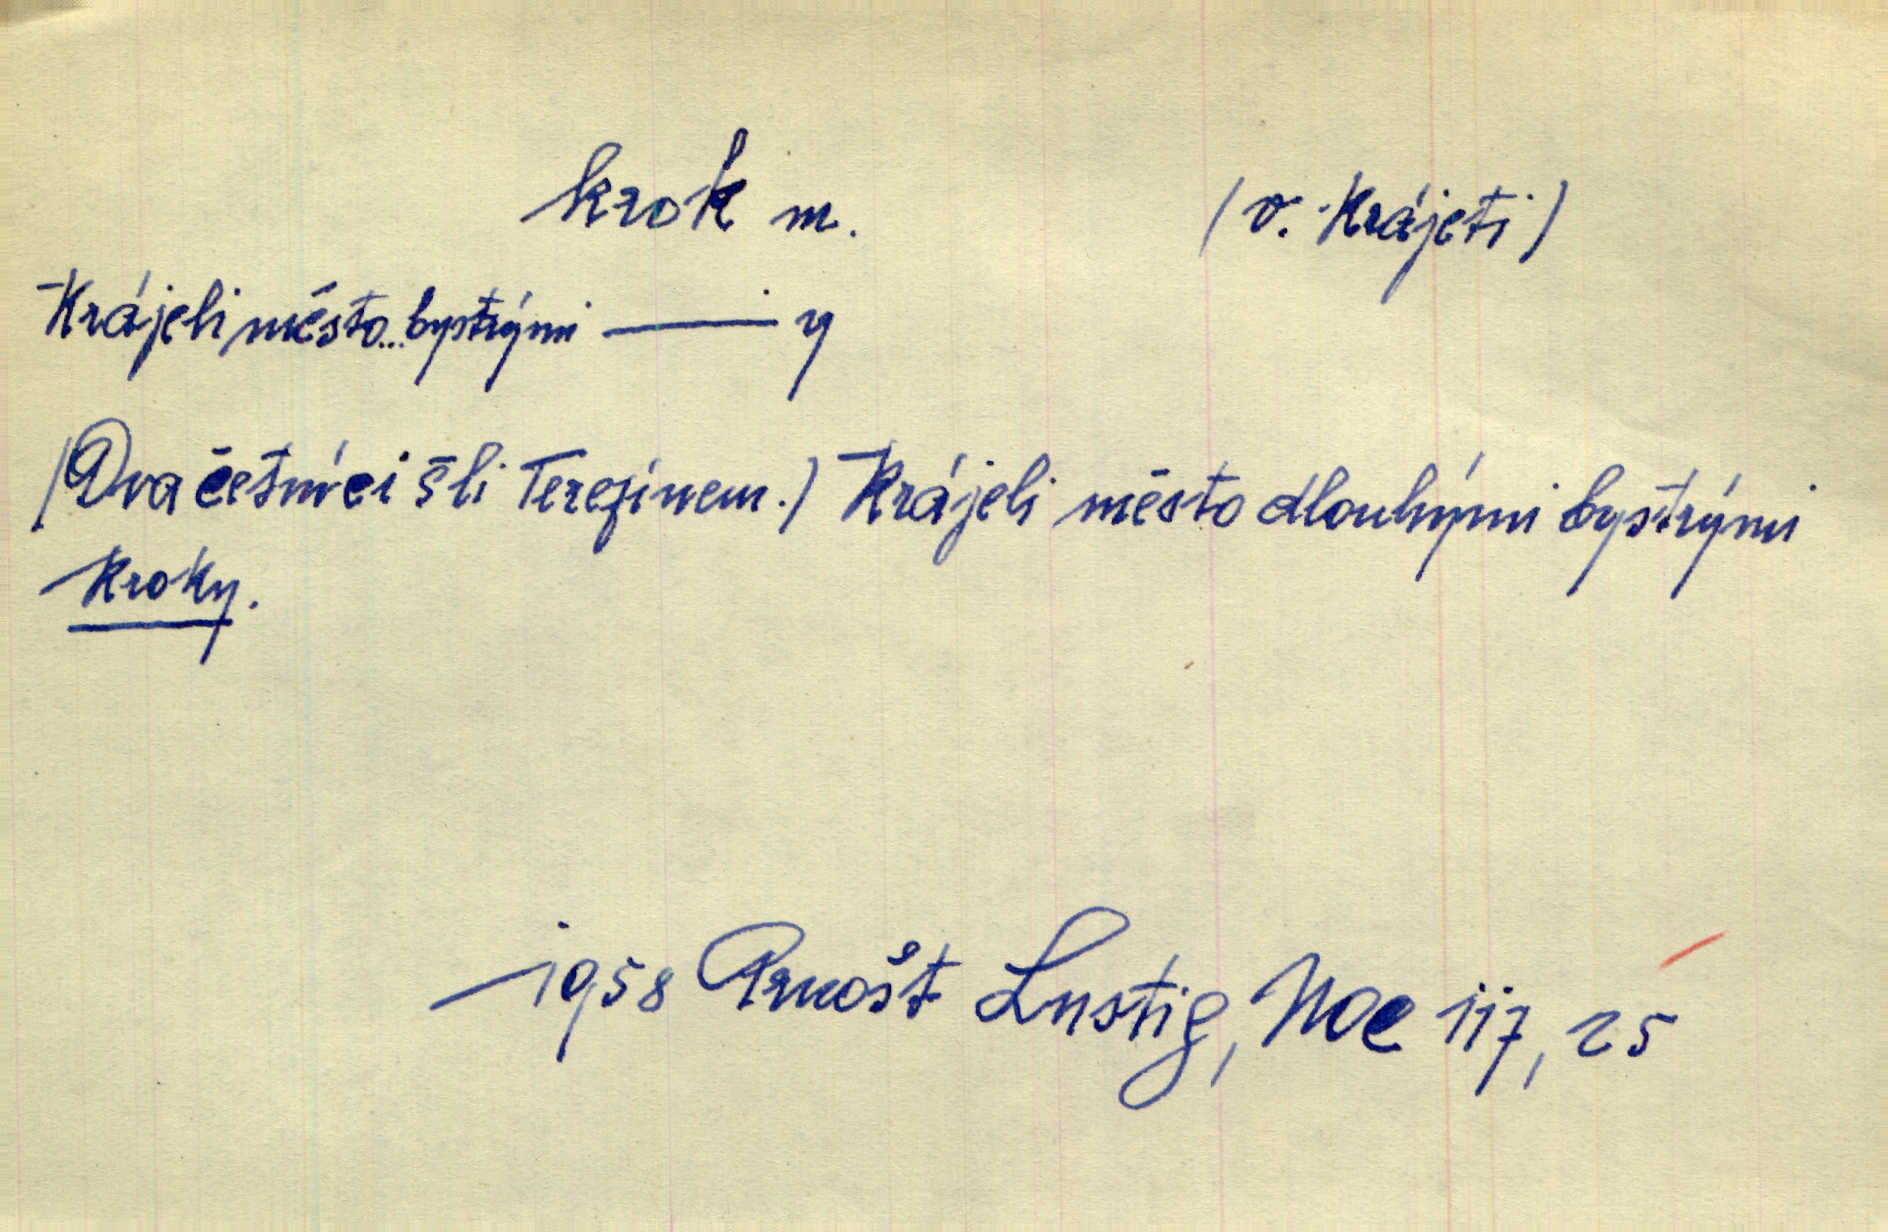 krok m. (v. krájeti)
Krájeli město... bystrými —— y
(Dva četníci šli Terezínem.) Krájeli město dlouhými bystrými
kroky.
1958 Arnošt Lustig, Noc 117, 25